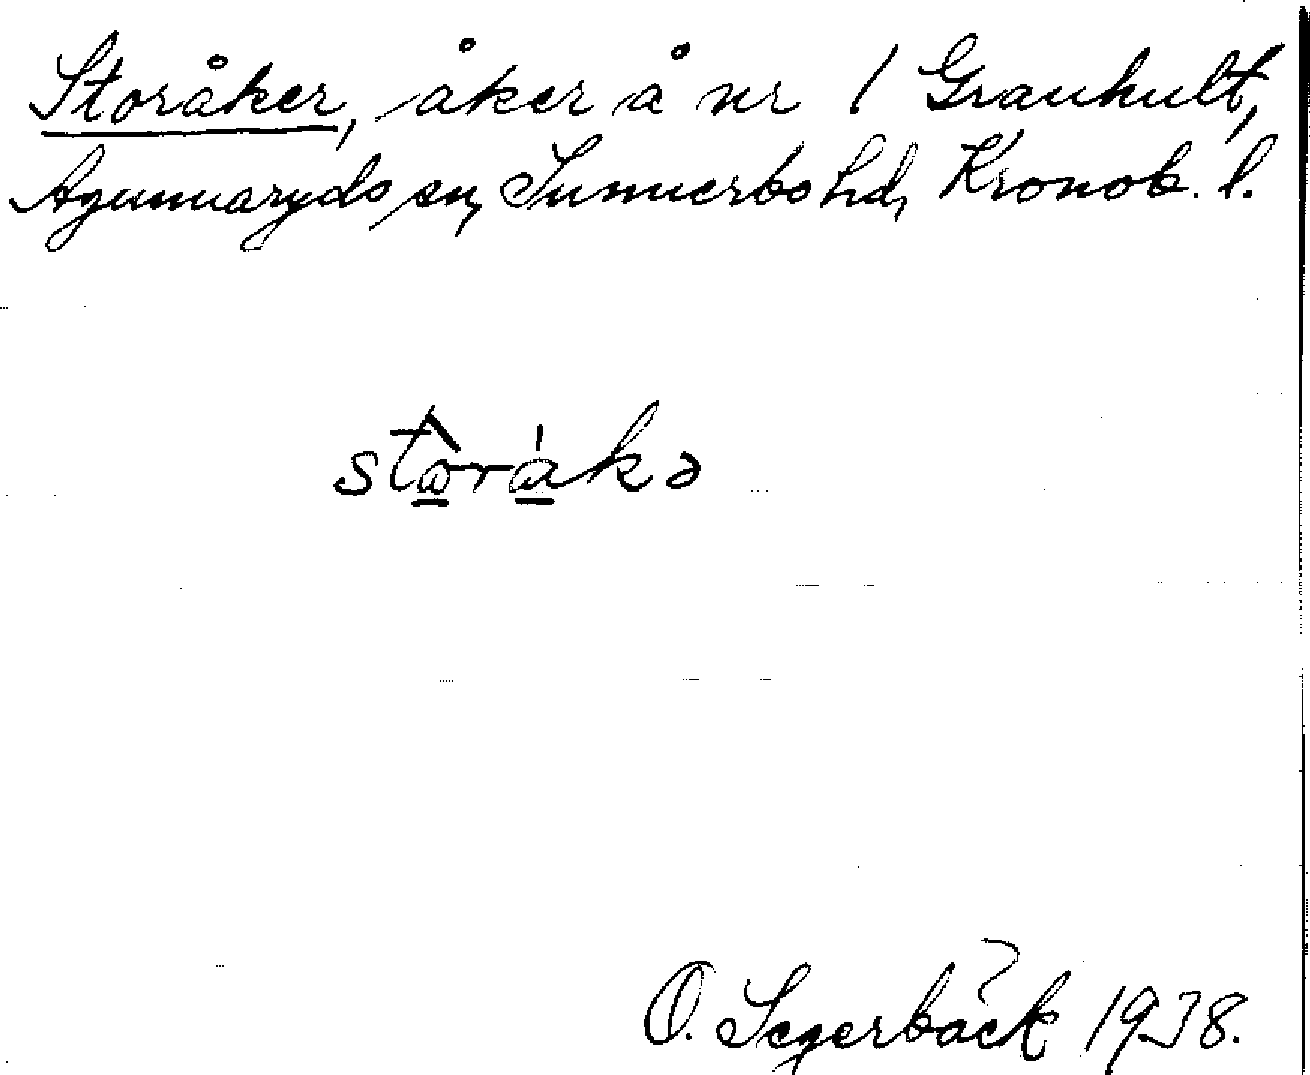 Storåker, åker å nr 1 Granhult,
Agunnaryds sn, Sunnerbo hd, Kronob. l.
stὼ̲rά̲kə
O. Segerbäck 1938.